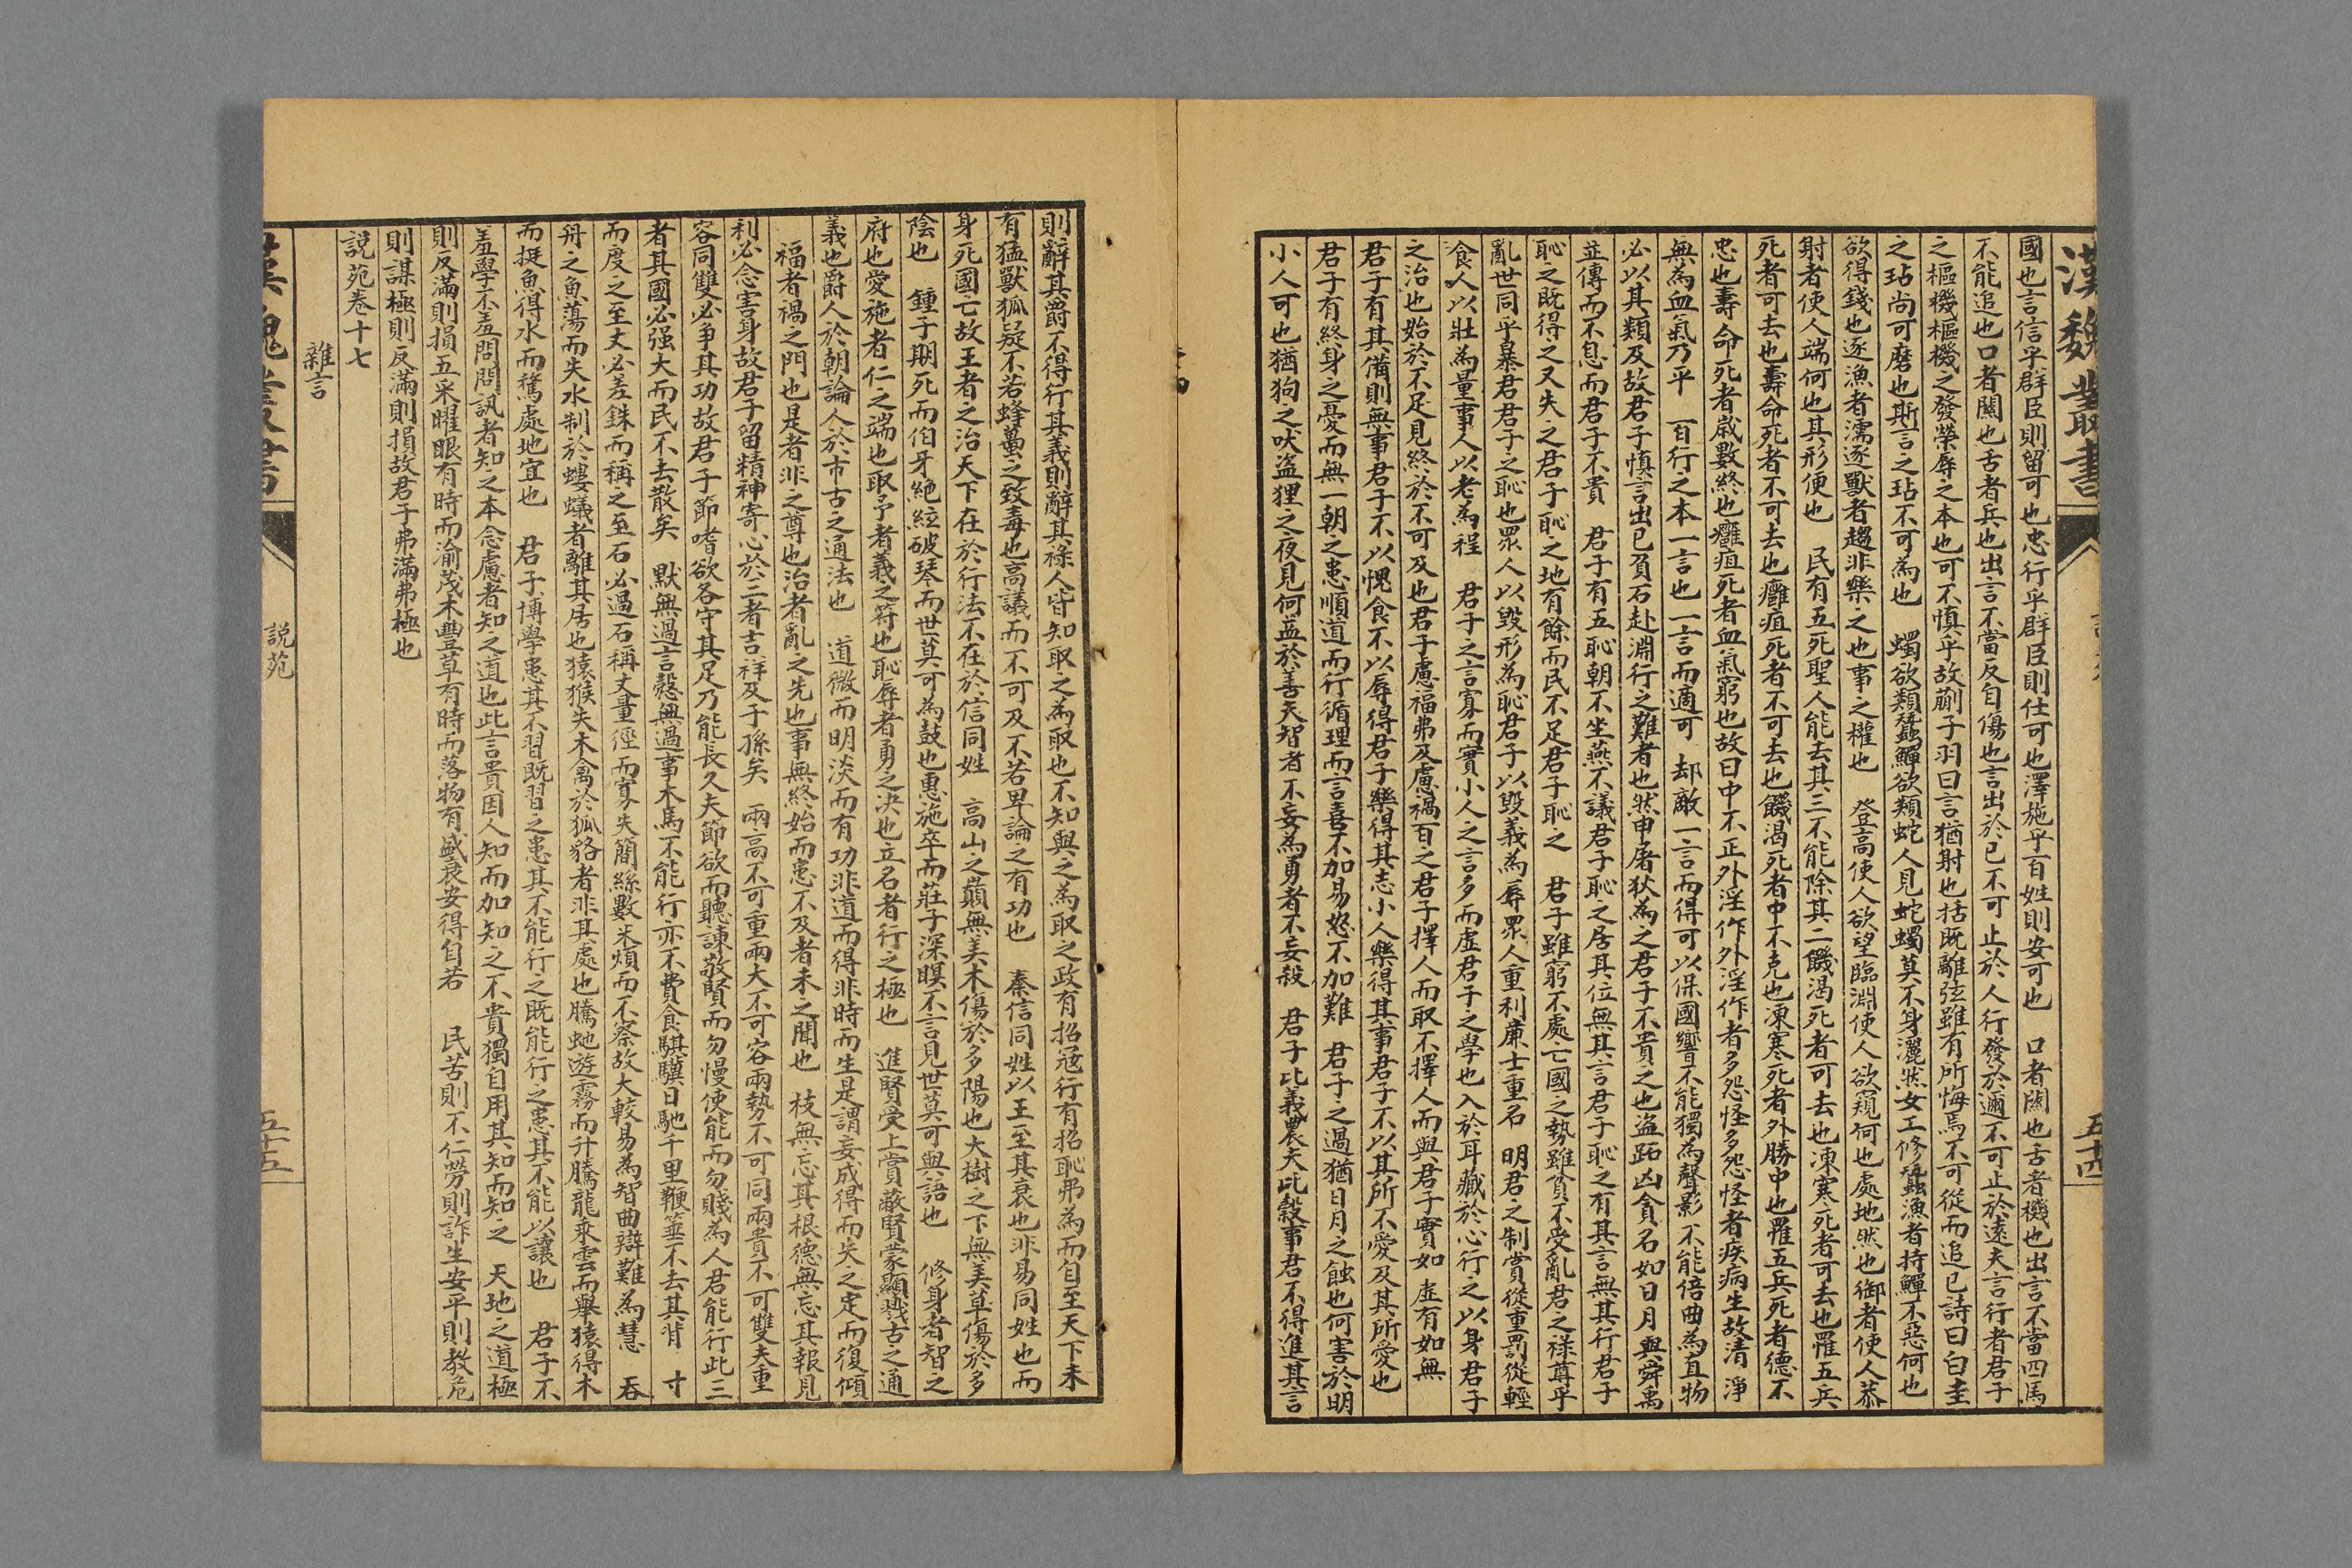 漢魏叢書
五十四
國也言信乎群臣則留可也忠行乎群臣則仕可也澤施乎百姓則安可也　口者關也舌者機也出言不當四馬
不能追也口者關也舌者兵也出言不當反自傷也言出於己不可止於人行發於邇不可止於遠夫言行者君子
之樞機樞機之發榮辱之本也可不慎乎故蒯子羽曰言猶射也括既離弦雖有所悔焉不可從而追已詩曰白圭
之玷尚可磨也斯言之玷不可為也　蠋欲類蠶鱓欲類蛇人見蛇蠋莫不身灑然女工修蠶漁者持鱓不惡何也
欲得錢也逐漁者濡逐獸者趨非樂之也事之權也　登高使人欲望臨淵使人欲窺何也處地然也御者使人恭
射者使人端何也其形便也　民有五死聖人能去其三不能除其二饑渴死者可去也凍寒死者可去也罹五兵
死者可去也壽命死者不可去也癰疽死者不可去也饑渴死者中不充也凍寒死者外勝中也罹五兵死者德不
忠也壽命死者歲數終也癰疽死者血氣窮也故曰中不正外淫作外淫作者多怨怪多怨怪者疾病生故清淨
無為血氣乃平　百行之本一言也一言而適可　却敵一言而得可以保國響不能獨為聲影不能倍曲為直物
必以其類及故君子慎言出已負石赴淵行之難者也然申屠狄為之君子不貴之也盜跖凶貪名如日月與舜禹
並傳而不息而君子不貴　君子有五恥朝不坐燕不議君子恥之居其位無其言君子恥之有其言無其行君子
恥之既得之又失之君子恥之地有餘而民不足君子恥之　君子雖窮不處亡國之勢雖貧不受亂君之祿尊乎
亂世同乎暴君君子之恥也眾人以毀形為恥君子以毀義為辱眾人重利廉士重名　明君之制賞從重罰從輕
食人以壯為量事人以老為程　君子之言寡而實小人之言多而虛君子之學也入於耳藏於心行之以身君子
之治也始於不足見終於不可及也君子慮福弗及慮禍百之君子擇人而取不擇人而與君子實如虛有如無
君子有其備則無事君子不以愧食不以辱得君子樂得其志小人樂得其事君子不以其所不愛及其所愛也
君子有終身之憂而無一朝之患順道而行循理而言喜不加易怒不加難　君子之過猶日月之蝕也何害於明
小人可也猶狗之吠盜狸之夜見何益於善夫智者不妄為勇者不妄殺　君子比義農夫比穀事君不得進其言
則辭其爵不得行其義則辭其祿人皆知取之為取也不知與之為取之政有招寇行有招恥弗為而自至天下未
有猛獸狐疑不若蜂蠆之致毒也高議而不可及不若卑論之有功也　秦信同姓以王至其衰也非易同姓也而
身死國亡故王者之治天下在於行法不在於信同姓　高山之巔無美木傷於多陽也大樹之下無美草傷於多
陰也　鍾子期死而伯牙絕絃破琴而世莫可為鼓也惠施卒而莊子深瞑不言見世莫可與語也　修身者智之
府也愛施者仁之端也取予者義之符也恥辱者勇之決也立名者行之極也　進賢受上賞蔽賢蒙顯戮古之通
義也爵人於朝論人於市古之通法也　道微而明淡而有功非道而得非時而生是謂妄成得而失之定而復傾
福者禍之門也是者非之尊也治者亂之先也事無終始而患不及者未之聞也　枝無忘其根德無忘其報見
利必念害身故君子留精神寄心於三者吉祥及子孫矣　兩高不可重兩大不可容兩勢不可同兩貴不可雙夫重
容同雙必爭其功故君子節嗜欲各守其足乃能長久夫節欲而聽諫敬賢而勿慢使能而勿賤為人君能行此三
者其國必强大而民不去散矣　默無過言慤無過事木馬不能行亦不費食騏驥日馳千里鞭箠不去其背　寸
而度之至丈必差銖而稱之至石必過石稱丈量徑而寡失簡絲數米煩而不察故大較易為智曲辯難為慧　吞
舟之魚蕩而失水制於螻蟻者離其居也猿猴失木禽於狐貉者非其處也騰蛇遊霧而升騰龍乘雲而舉猿得木
而挺魚得水而騖處地宜也　君子博學患其不習既習之患其不能行之既能行之患其不能以讓也　君子不
羞學不羞問問訊者知之本念慮者知之道也此言貴因人知而加知之不貴獨自用其知而知之　天地之道極
則反滿則損五采曜眼有時而渝茂木豐草有時而落物有盛衰安得自若　民苦則不仁勞則詐生安平則教危
則謀極則反滿則損故君子弗滿弗極也
說苑卷十七
雜言
漢魏叢書
說苑
五十五